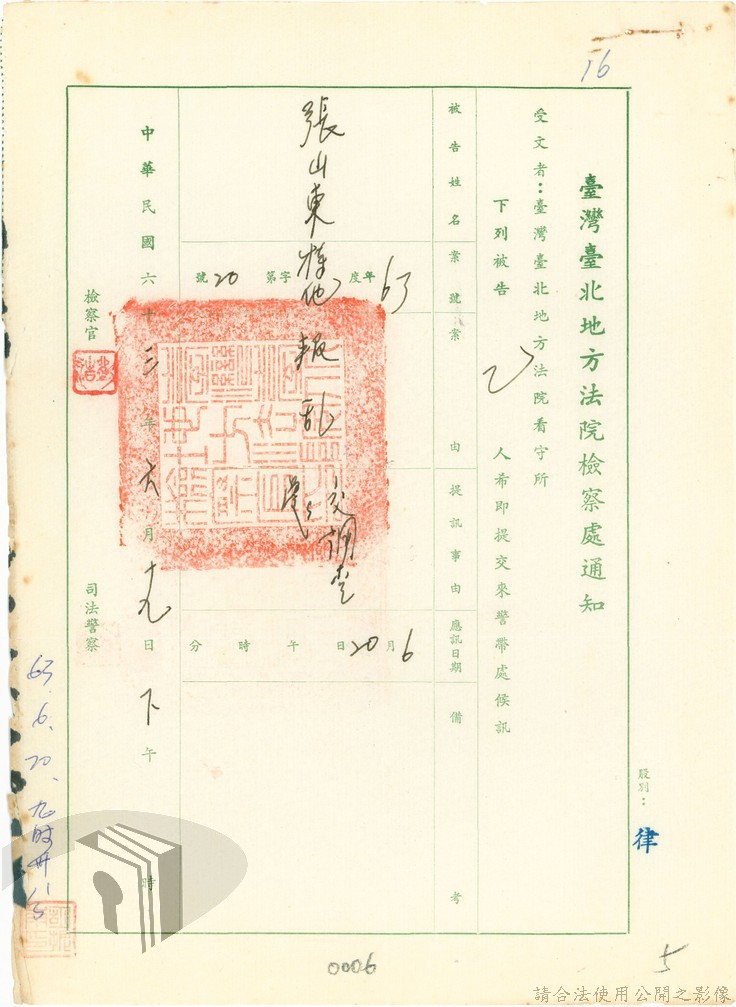 16
臺灣臺北地方法院檢察處通知
受文者：臺灣臺北地方法院看守所
下列被告 乙 人希即提交來警帶處候訊
被告姓名
案號
案由
提訊事由
應訊日期
備考
張山東
63年度 字第20號
叛乱
交調查
6月20日 午 時 分
中華民國六十三年六月十九日下午 時
檢察官
司法警察
63.6.20、九時卅分
股別：律
0006
5
請合法使用公開之影像